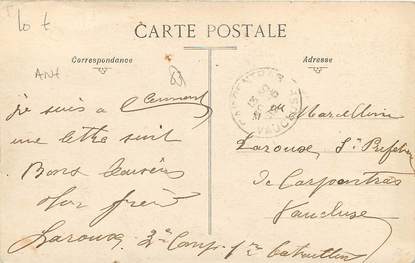 10 t
CARTE POSTALE
Correspondance
Adresse
ANT
Je suis a Clermont
une lettre suit
Bons baisers
ton frère
Larouse, 2e Comp. 1er bataillon
Marcellin
Larouse, S. Préfecture
de Carpentras
Vaucluse
CARPENTRAS
VAUCLUSE